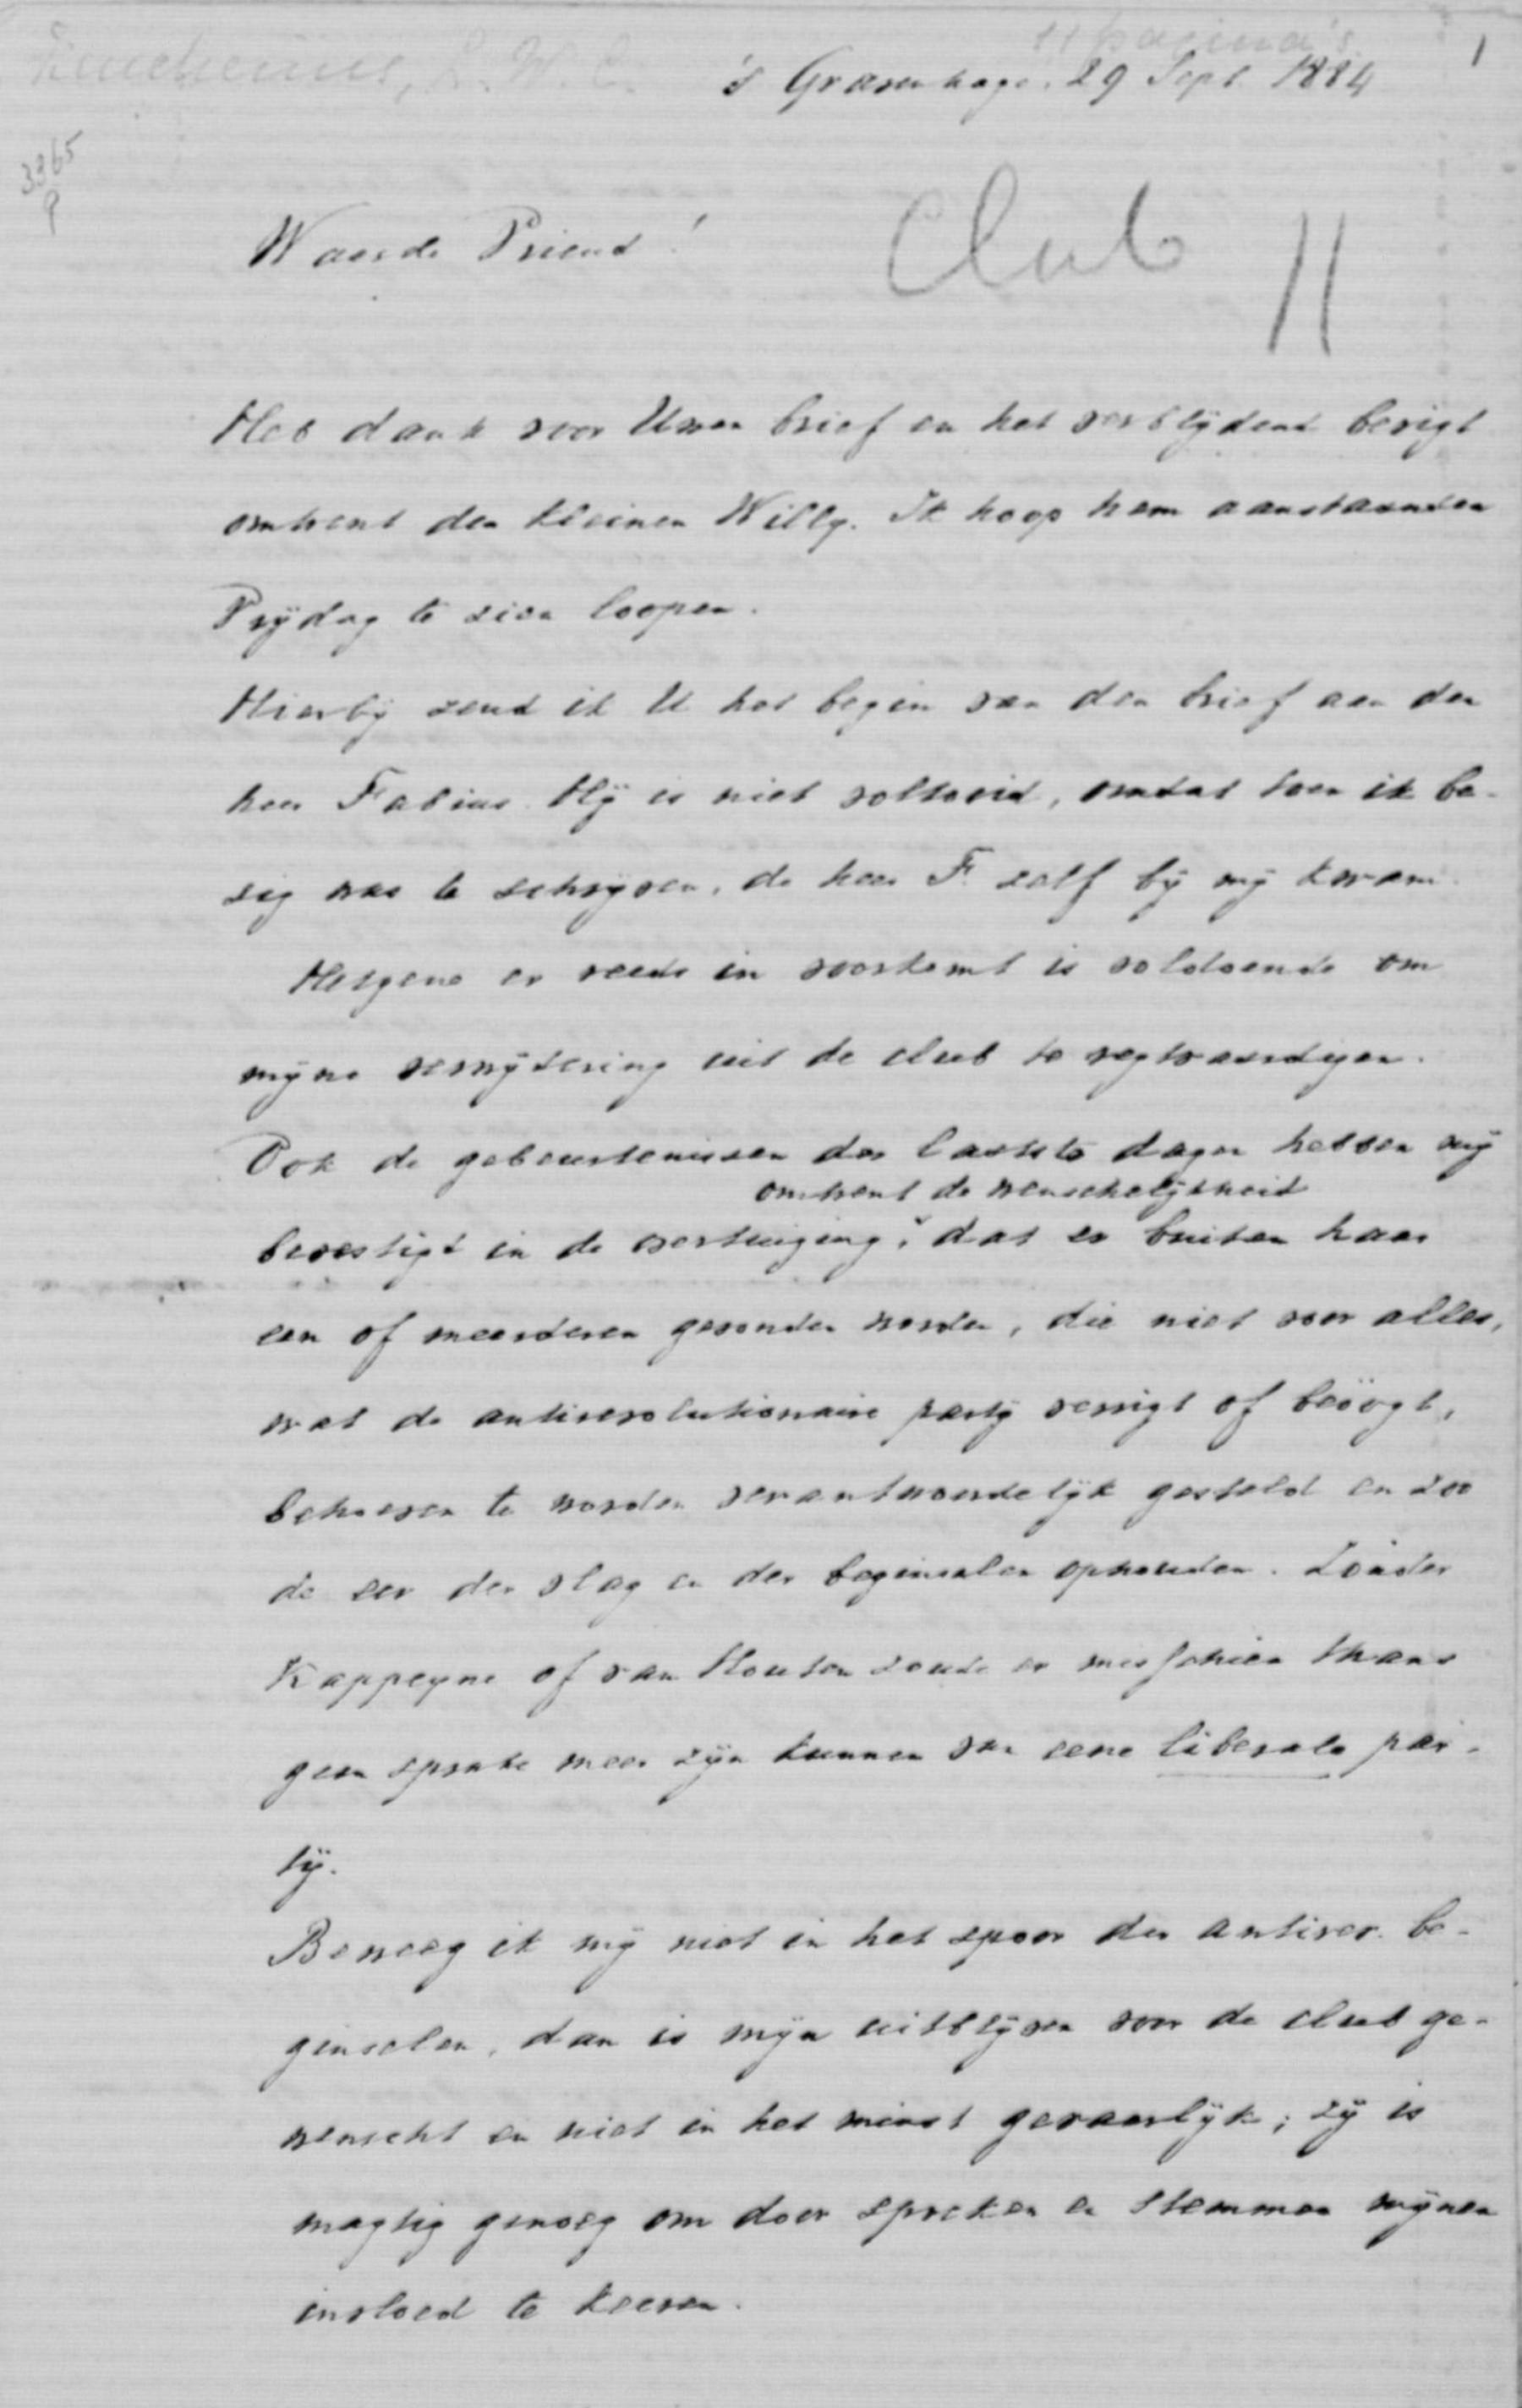 11 pagina's
1
Keuchenius, L. W. C.
's Gravenhage, 29 Sept 1884
3965
Waarde Vriend!
Club
Heb dank voor Uwen brief en het verblijdend berigt
omtrent den kleinen Willy. Ik hoop hem aanstaanden
Vrijdag te zien loopen.
Hierbij zend ik U het begin van den brief aan den
heer Fabius. Hij is niet voltooid, omdat toen ik be-
zig was te schrijven, de heer F. zelf bij mij kwam.
Hetgene er reeds in voorkomt is voldoende om
mijne verwijdering uit de club te regtvaardigen.
Ook de gebeurtenissen der laatste dagen hebben mij
omtrent de wenschelijkheid
bevestigd in de overtuiging, dat er buiten haar
een of meerderen gevonden worden, die niet voor alles,
wat de antirevolutionaire partij verrigt of beöogt,
behoeven te worden verantwoordelijk gesteld en zoo
de eer der vlag en der beginselen ophouden. Zonder
Kappeyne of van Houten zoude er misschien thans
geen sprake meer zijn kunnen van eene liberale par-
tij.
Beweeg ik mij niet in het spoor der antirev. be-
ginselen, dan is mijn uitblijven voor de club ge-
wenscht en niet in het minst gevaarlijk; zij is
magtig genoeg om door spreken en stemmen mijnen
invloed te keeren.